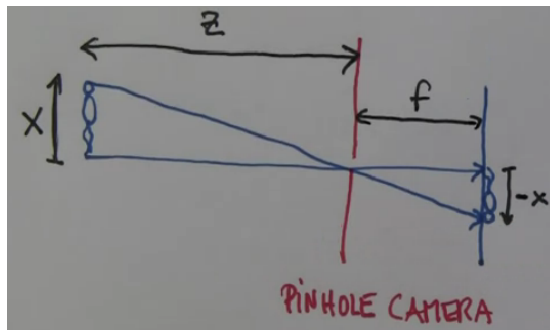 Z
f
X
-x
PiNHOLE CAMERA